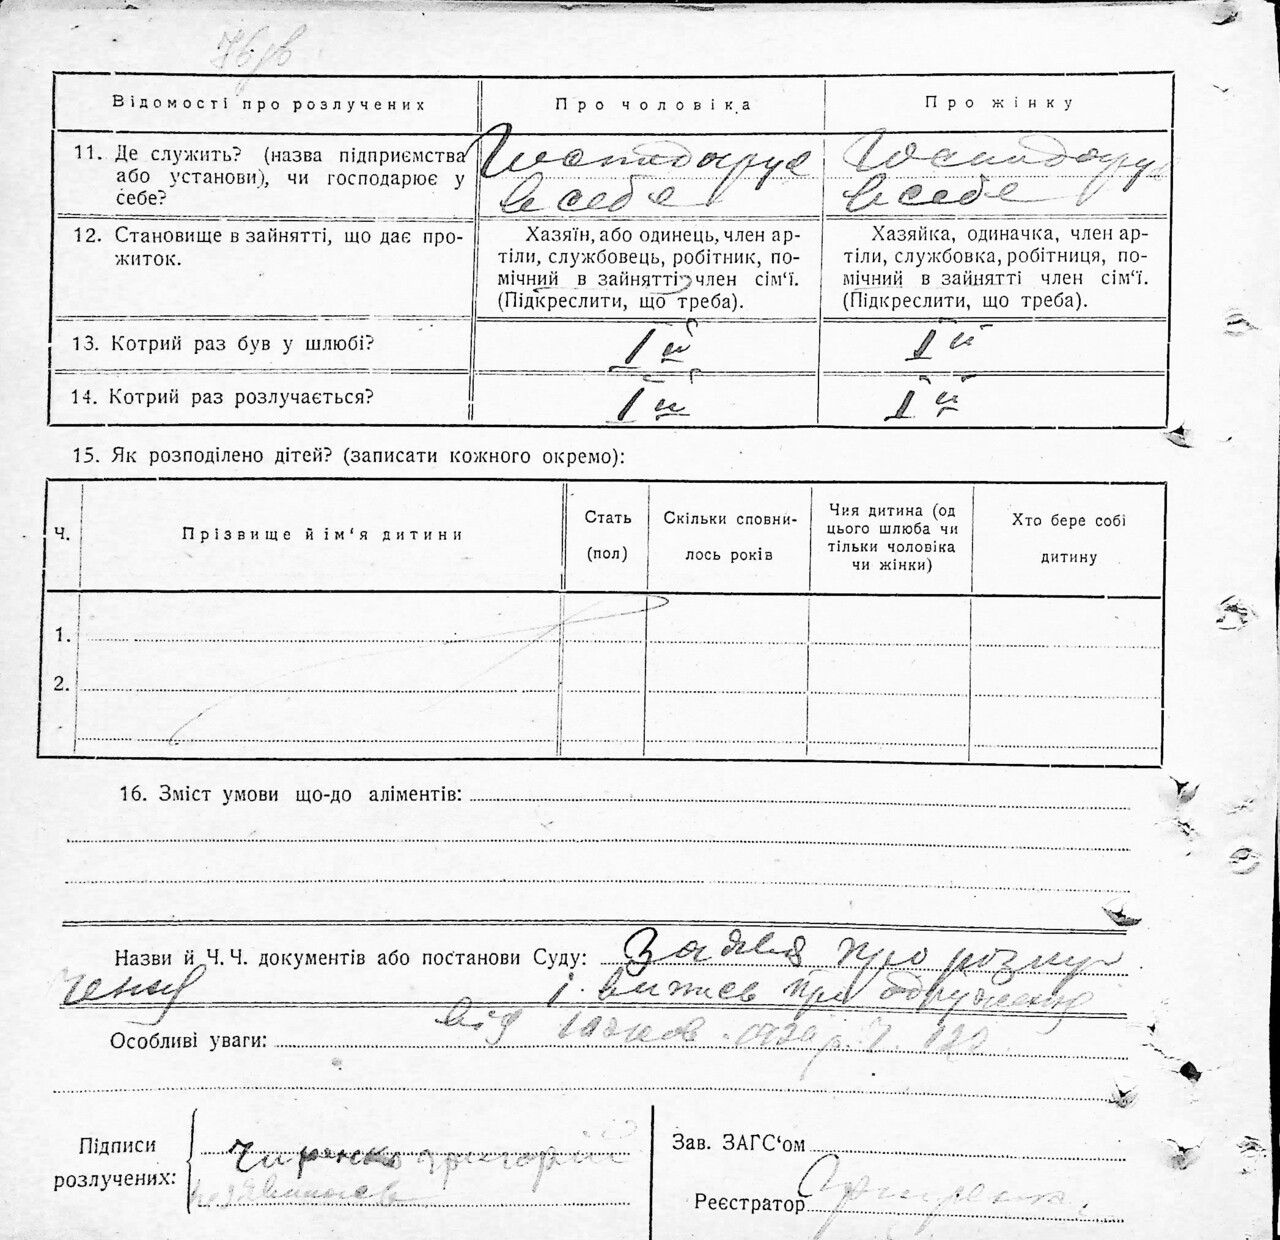 76 зв
Відомості про розлучених
Про чоловіка
Про жінку
11. Де служить? (назва підприємства або установи), чи господарює у себе?
Господарує
в себе
Господарує
в себе
12. Становище в зайнятті, що дає прожиток.
Хазяїн, або одинець, член артілі, службовець, робітник, помічний в зайнятті член сім‘ї. (Підкреслити, що треба).
Хазяйка, одиначка, член артілі, службовка, робітниця, помічний в зайнятті член сім‘ї. (Підкреслити, що треба).
13. Котрий раз був у шлюбі?
І й
І й
14. Котрий раз розлучається?
І й
І й
15. Як розподілено дітей? (записати кожного окремо):
Ч.
Прізвище й ім‘я дитини
Стать (пол)
Скільки сповнилось років
Чия дитина (од цього шлюба чи тільки чоловіка чи жінки)
Хто бере собі дитину
1.
2.
16. Зміст умови що-до аліментів:
Назви й Ч. Ч. документів або постанови Суду: Заява про розлу
чення і. випись про одруження
від
Особливі уваги:
Підписи розлучених:
Чиренко Григорій
Зав. ЗАГС‘ом
Реєстратор